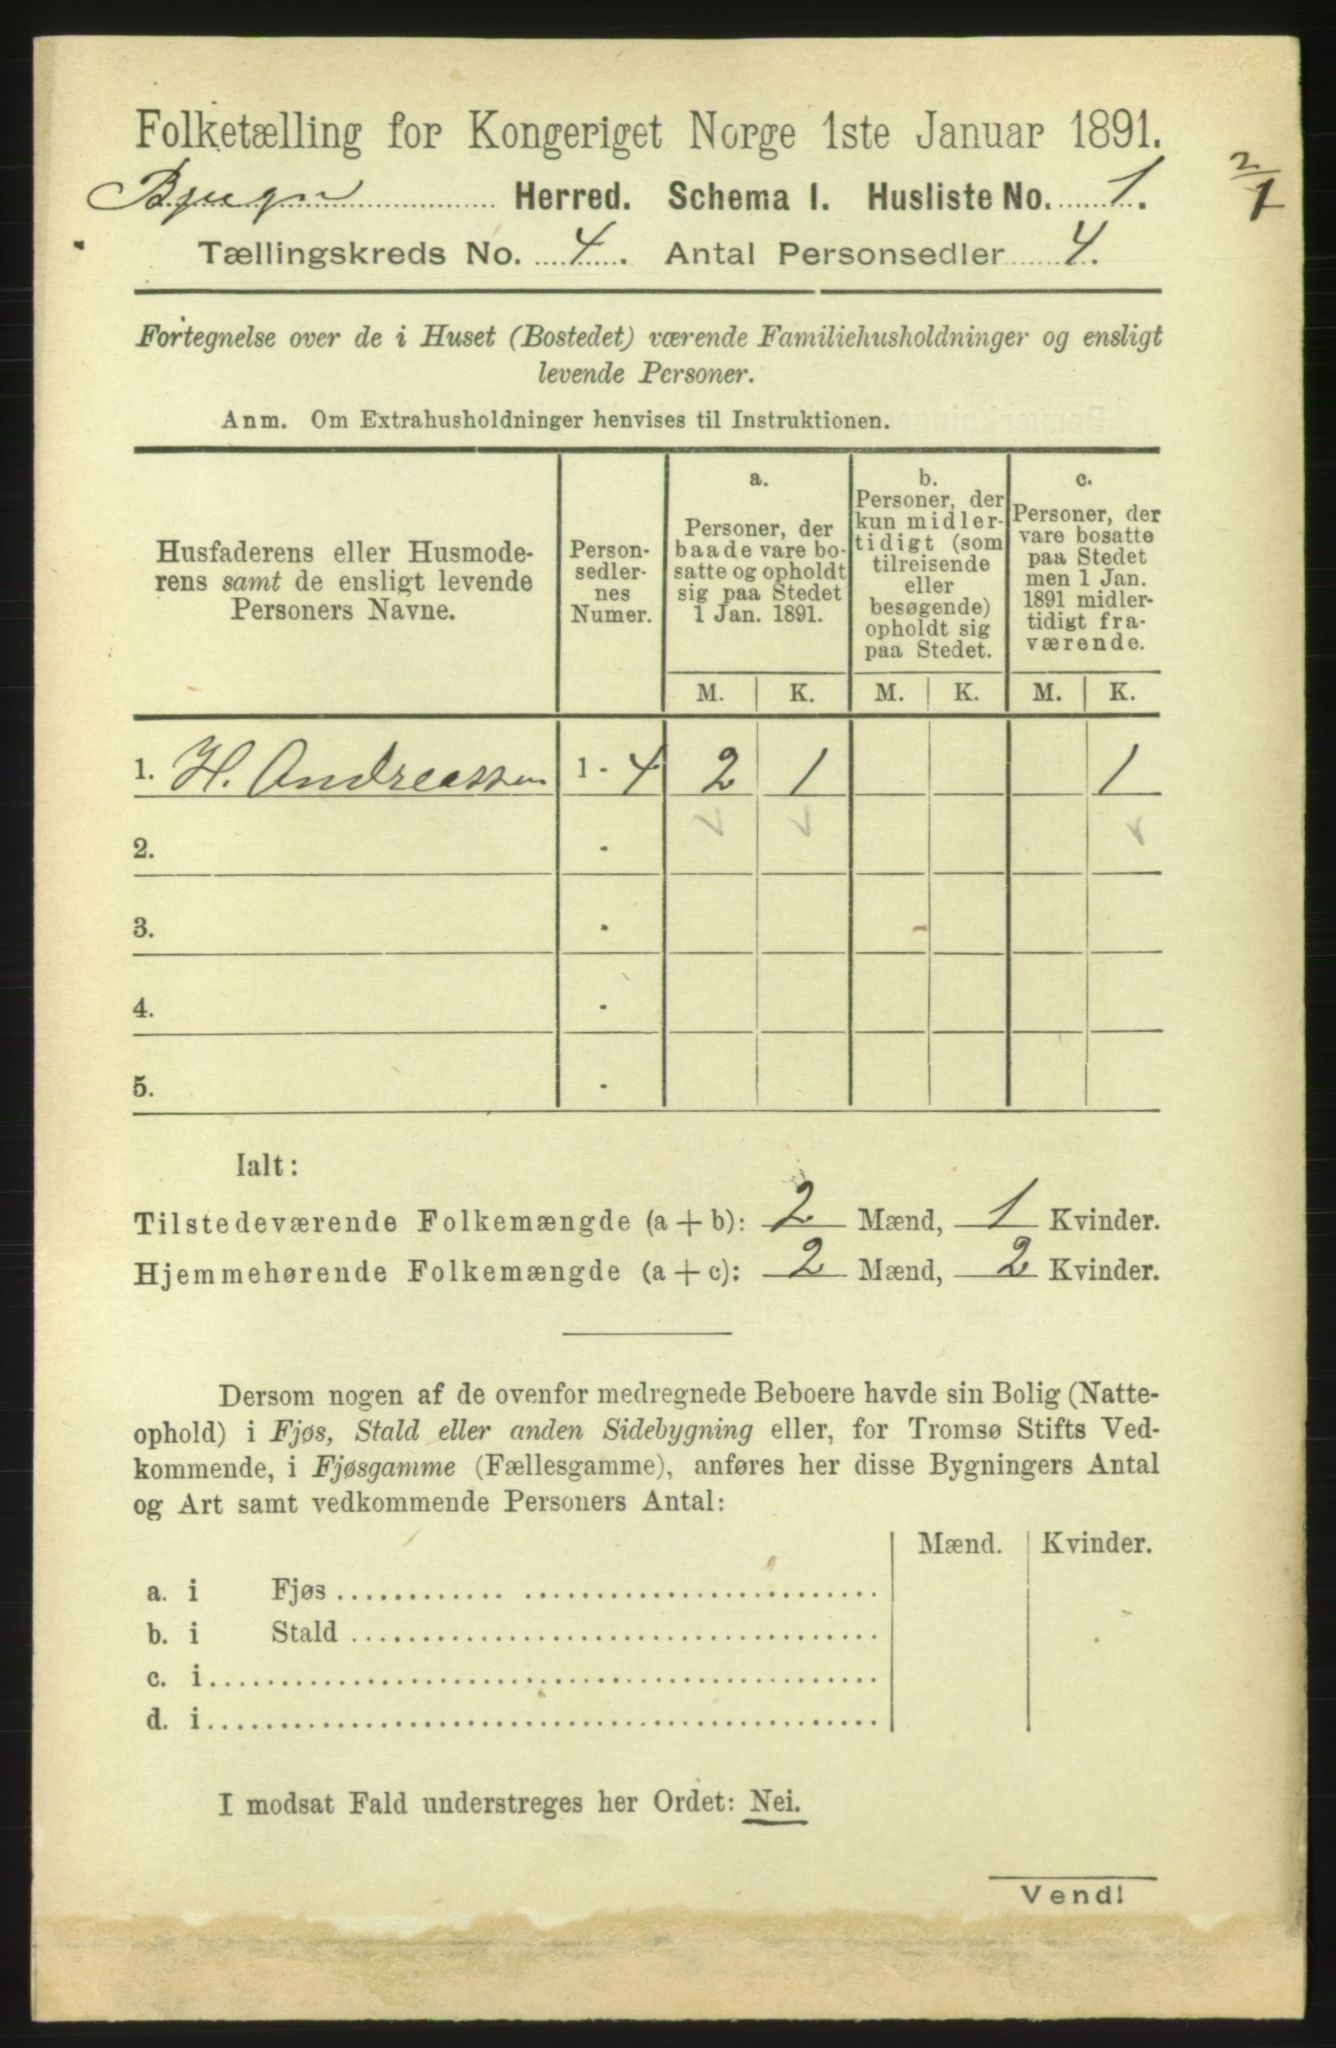 Folketælling for Kongeriget Norge 1ste Januar 1891.
Bjugn Herred. Schema I. Husliste No. 1.
2/1
Tællingskreds No. 4. Antal Personsedler 4.
Fortegnelse over de i Huset (Bostedet) værende Familiehusholdninger og ensligt
levende Personer.
Anm. Om Extrahusholdninger henvises til Instruktionen.
Husfaderens eller Husmode-
rens samt de ensligt levende
Personers Navne.
Person-
sedler-
nes
Numer.
a.
Personer, der
baade vare bo-
satte og opholdt
sig paa Stedet
1 Jan. 1891.
b.
Personer, der
kun midler-
tidigt (som
tilreisende
eller
besøgende)
opholdt sig
paa Stedet.
c.
Personer, der
vare bosatte
paa Stedet
men 1 Jan.
1891 midler-
tidigt fra-
værende.
M. K. M. K. M. K.
1. H. Andreassen 1 - 4 2 1 1
2. -
3. -
4. -
5. -
Ialt:
Tilstedeværende Folkemængde (a + b): 2 Mænd, 1 Kvinder.
Hjemmehørende Folkemængde (a + c): 2 Mænd, 2 Kvinder.
Dersom nogen af de ovenfor medregnede Beboere havde sin Bolig (Natte-
ophold) i Fjøs, Stald eller anden Sidebygning eller, for Tromsø Stifts Ved-
kommende, i Fjøsgamme (Fællesgamme), anføres her disse Bygningers Antal
og Art samt vedkommende Personers Antal:
Mænd. Kvinder.
a. i Fjøs
b. i Stald
c. i
d. i
I modsat Fald understreges her Ordet: Nei.
Vend!